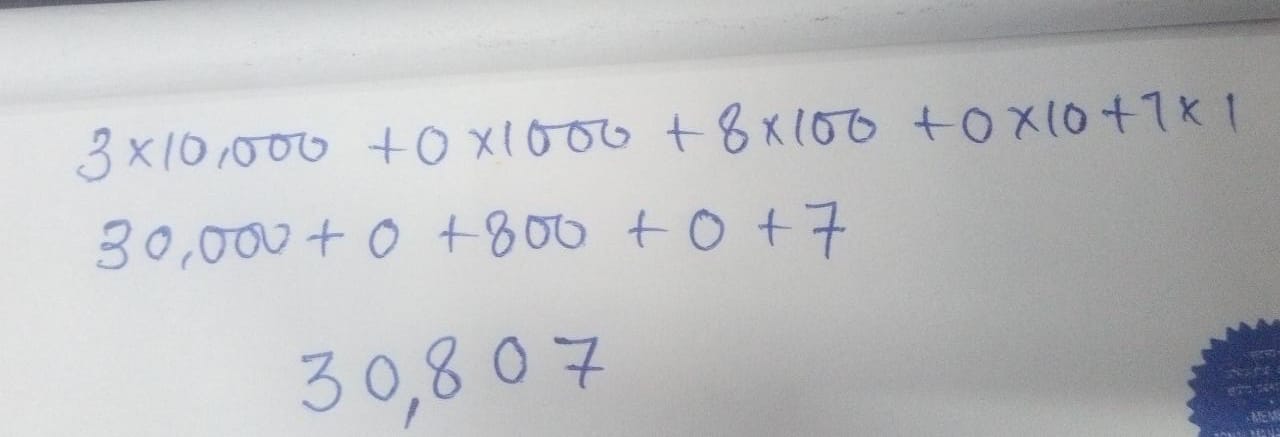 3×10,000 +0×1000 +8×100 +0×10+7×1
30,000+0+800+0+7
30,807